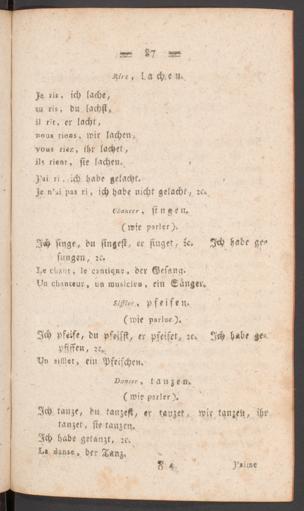 = 27 =
Rire, lachen.
Je ris, ich lache,
tu ris, du lachst,
il rit, er lacht,
nous rions, wir lachen,
vous riez, ihr lachet,
ils rient, sie lachen.
J'ai ri, ich habe gelacht.
Je n'ai pas ri, ich habe nicht gelacht, ꝛc.
Chanter, singen.
(wie parler).
Ich singe, du singest, er singet, ꝛc. Ich habe ge-
sungen, ꝛc.
Le chant, le cantique, der Gesang.
Un chanteur, un musicien, ein Sänger.
Siffler, pfeifen.
(wie parler).
Ich pfeife, du pfeifst, er pfeifet, ꝛc. Ich habe ge-
pfiffen, ꝛc.
Un sifflet, ein Pfeifchen.
Danser, tanzen.
(wie parler).
Ich tanze, du tanzest, er tanzet, wir tanzen, ihr
tanzet, sie tanzen.
Ich habe getanzt, ꝛc.
La danse, der Tanz.
J'aime